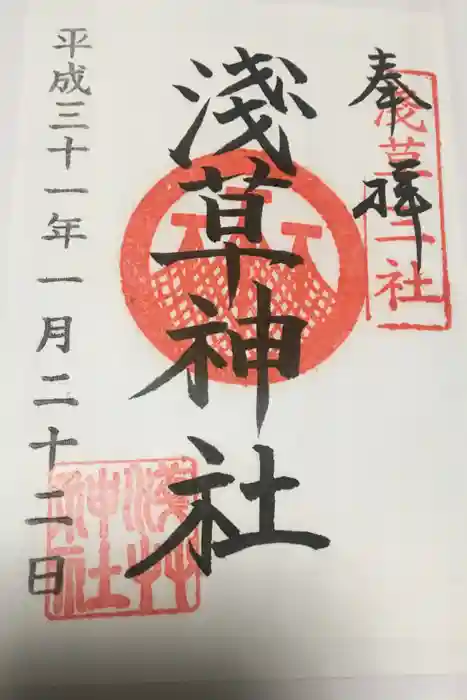 奉拝
淺草三社
淺草神社
平成三十一年一月二十二日
淺艸神社